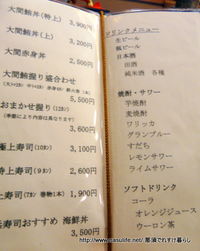 大間鮪丼(特上)
3,900円
大間鮪丼(上)
3,200円
大間赤身丼
2,500円
大間鮪握り盛合わせ
5,500円
おまかせ握り(12カン)
3,600円
極上寿司(12カン)
3,600円
特上寿司
2,900円
上寿司(7カン)巻物(1本)
1,900円
寿司おすすめ 海鮮丼
3,500円
ドリンクメニュー
生ビール
瓶ビール
日本酒
田酒
純米酒 各種
焼酎・サワー
芋焼酎
麦焼酎
ワリッカ
グランブルー
すだち
レモンサワー
ライムサワー
ソフトドリンク
コーラ
オレンジジュース
ウーロン茶
http://www.nasulife.net/ 那須でれすけ暮らし